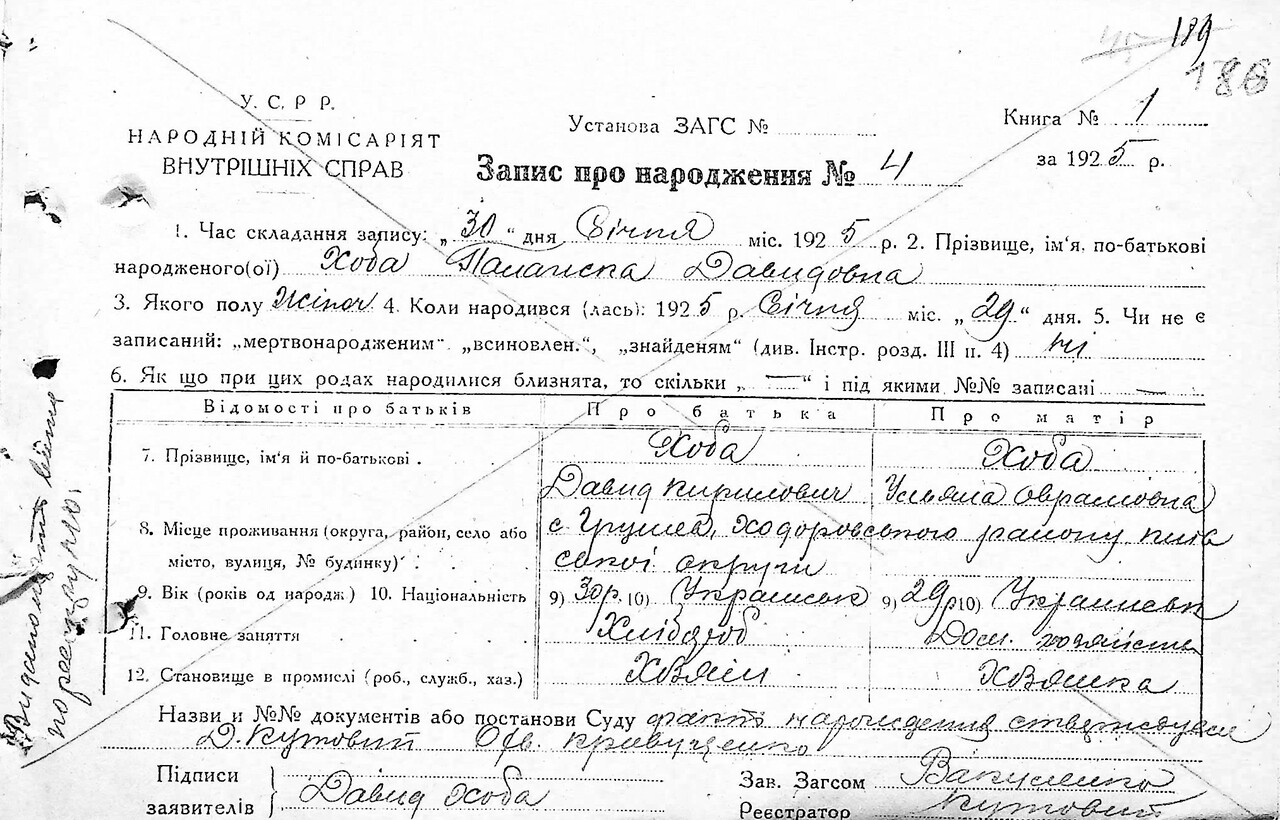 45 189
186
У. С. Р Р.
НАРОДНІЙ КОМІСАРІЯТ
ВНУТРІШНІХ СПРАВ
Установа ЗАГС №
Книга № 1
за 1925 р.
Запис про народження № 4
1. Час складання запису: „30“ дня Січня міс. 1925 р. 2. Прізвище, ім'я, по-батькові
народженого(ої) Хоба Палажка Давидовна
3. Якого полу Жіноч 4. Коли народився (лась): 1925 р. Січня міс. „29“ дня. 5. Чи не є
записаний: „мертвонародженим“. „всиновлен.“, „знайденям“ (див. Інстр. розд. III п. 4) ні
6. Як що при цих родах народилися близнята, то скільки „—“ і під якими №№ записані —
Відомості про батьків Про батька Про матір
7. Прізвище, ім'я й по-батькові . Хоба Хоба
Давид Кирилович Ульяна Оврамовна
8. Місце проживання (округа, район, село або с Грушев, Ходоровського району Київ
місто, вулиця, № будинку) ської округи
9. Вік (років од народж.) 10. Національність 9) 30р. 10) Українськ 9) 29р 10) Українськ
11. Головне заняття Хлібороб Дом. хозяйство
12. Становище в промислі (роб., служб., хаз.) Хозяїн Хозяйка
Назви и №№ документів або постанови Суду факт народження стверджували
Д. Кутовий Кравученко
Підписи
заявителів Давид Хоба
Зав. Загсом Вакуленко
Реєстратор Кутовий